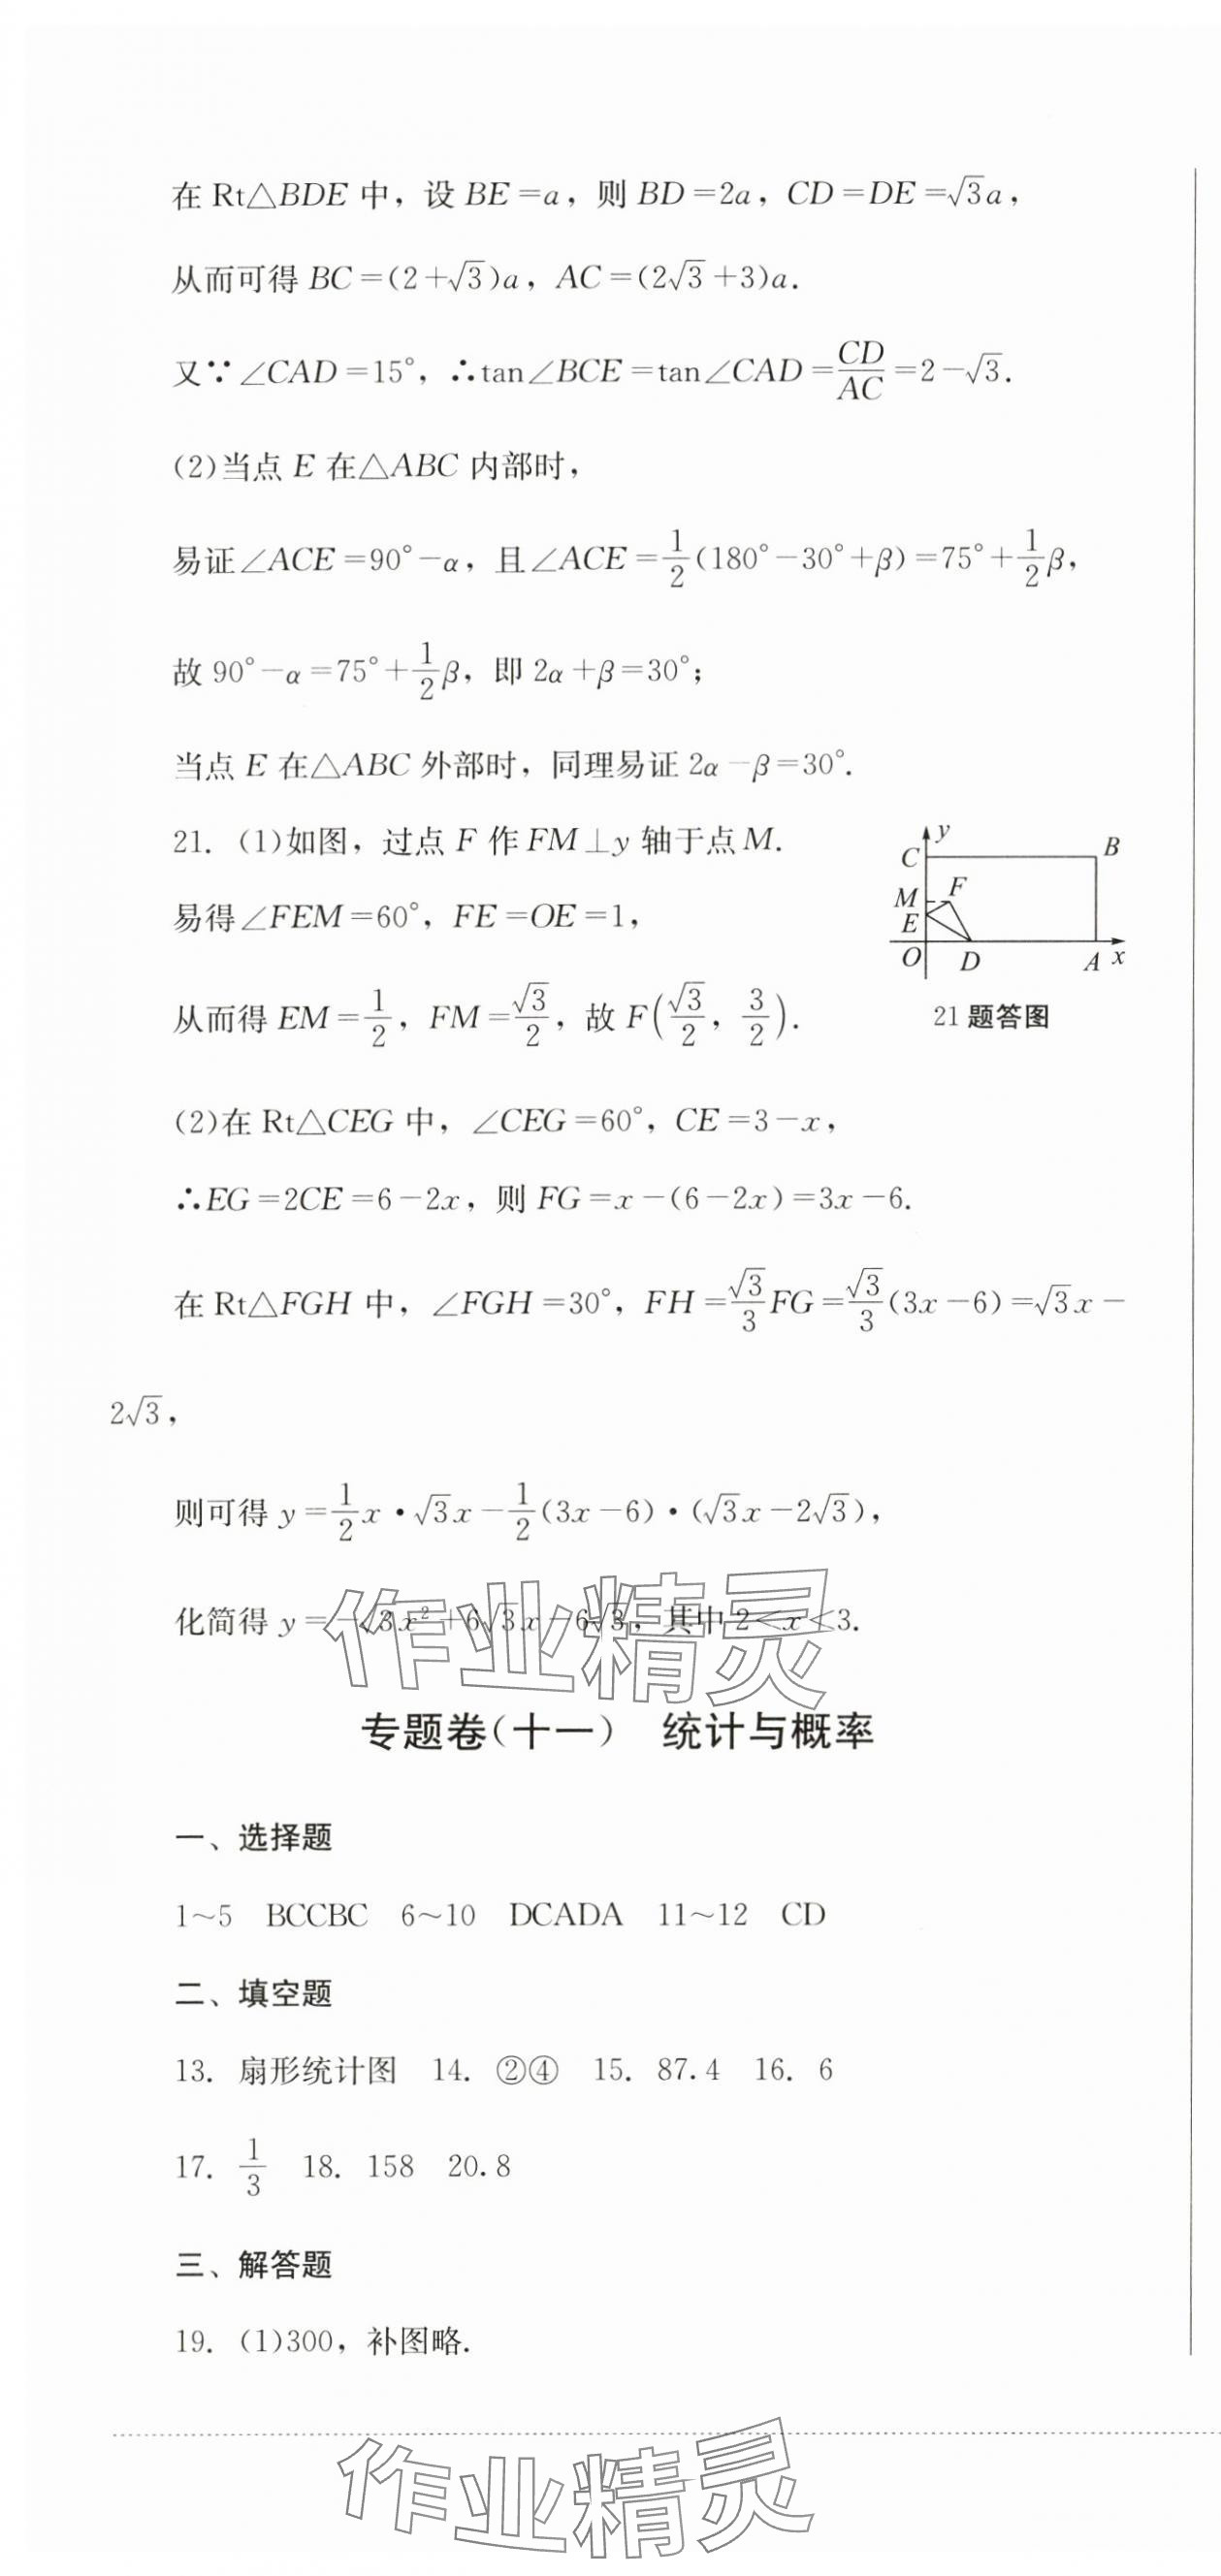 在 Rt△BDE 中，设 BE=a，则 BD=2a，CD=DE=√3a，
从而可得 BC=(2+√3)a，AC=(2√3+3)a.
又∵∠CAD=15°，∴tan∠BCE=tan∠CAD=CD/AC=2-√3.
(2)当点 E 在△ABC 内部时，
易证∠ACE=90°-α，且∠ACE=1/2(180°-30°+β)=75°+1/2β，
故 90°-α=75°+1/2β，即 2α+β=30°；
当点 E 在△ABC 外部时，同理易证 2α-β=30°.
21. (1)如图，过点 F 作 FM⊥y 轴于点 M.
易得∠FEM=60°，FE=OE=1，
从而得 EM=1/2，FM=√3/2，故 F(√3/2，3/2).
y
C B
M F
E
O D A x
21 题答图
(2)在 Rt△CEG 中，∠CEG=60°，CE=3-x，
∴EG=2CE=6-2x，则 FG=x-(6-2x)=3x-6.
在 Rt△FGH 中，∠FGH=30°，FH=√3/3FG=√3/3(3x-6)=√3x-
2√3，
则可得 y=1/2x·√3x-1/2(3x-6)·(√3x-2√3)，
化简得 y=-√3x²+6√3x-6√3，其中 2<x<3.
作业精灵
专题卷(十一) 统计与概率
一、选择题
1~5 BCCBC 6~10 DCADA 11~12 CD
二、填空题
13. 扇形统计图 14. ②④ 15. 87.4 16. 6
17. 1/3 18. 158 20.8
三、解答题
19. (1)300，补图略.
作业精灵